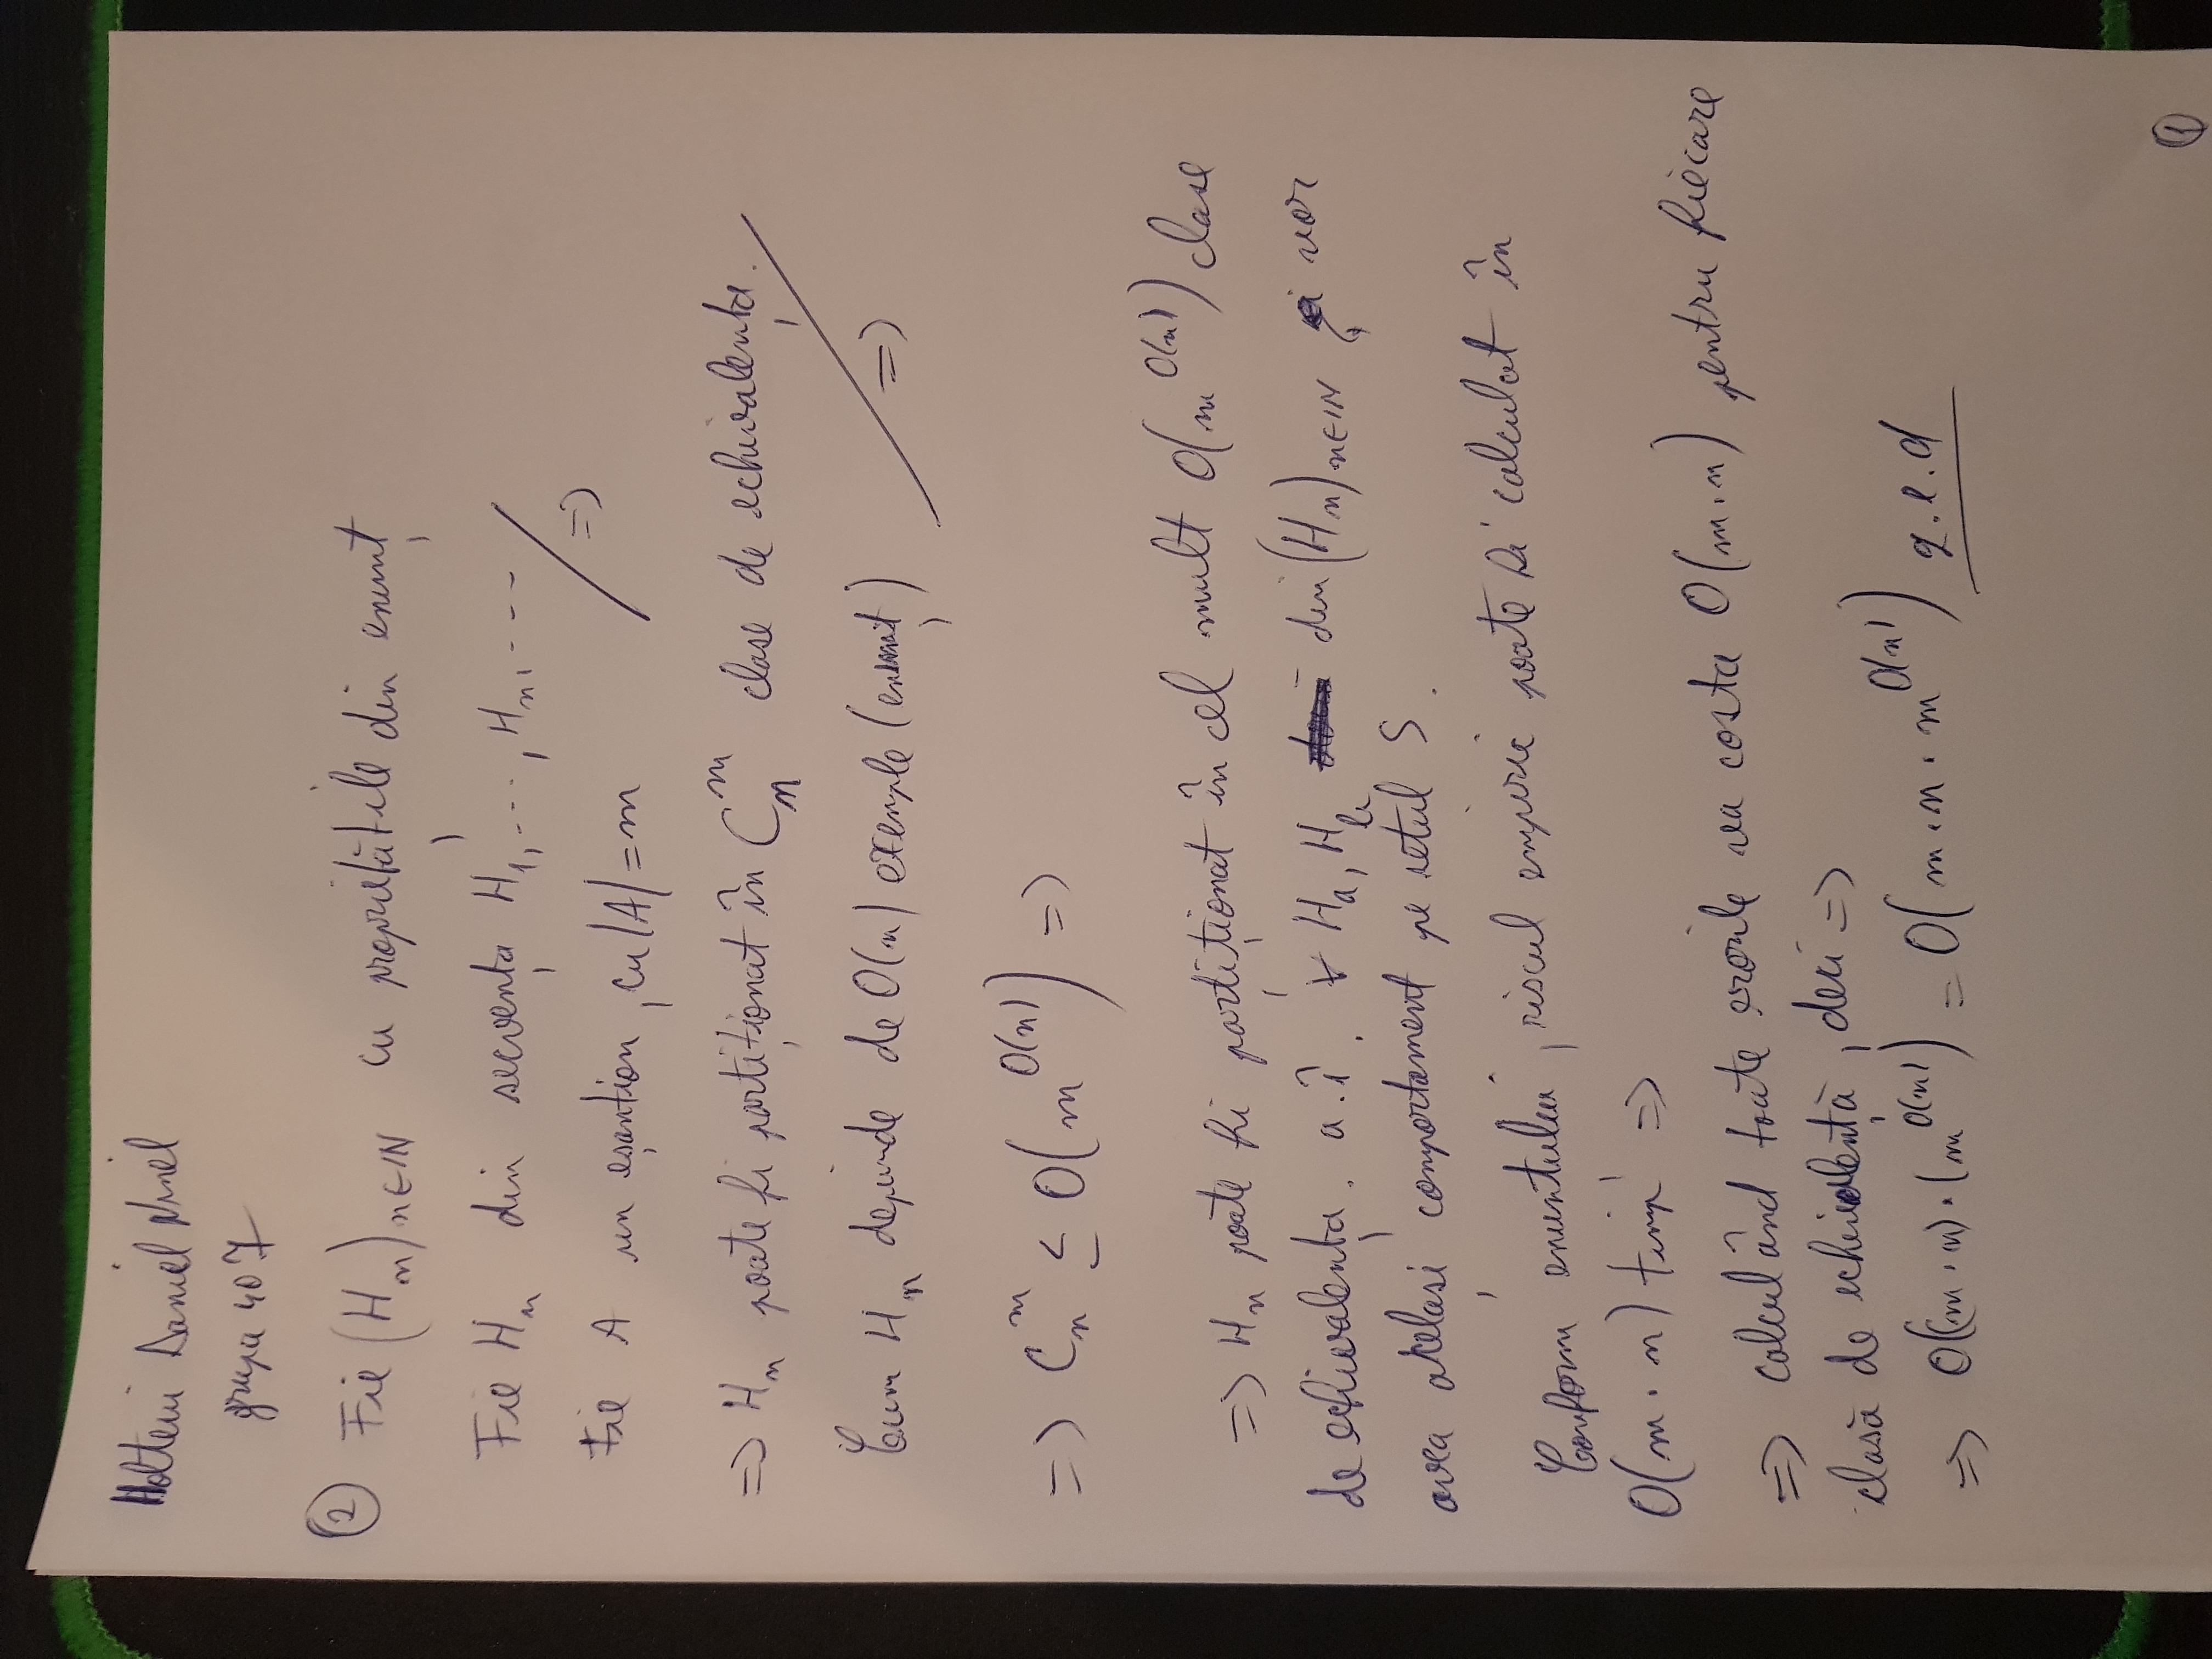 Holteiu Daniel Ninel
grupa 407
② Fie (Hn)n∈IN cu proprietățile din enunț
Fie Hn din secvența H1, ..., Hn, ---
Fie A un eșantion, cu |A|=m =>
=> Hn poate fi partiționat în C_n^m clase de echivalența.
Cum Hn depinde de O(n) exemple (enunț) =>
=> C_n^m ≤ O(m^O(n)) =>
=> Hn poate fi partiționat în cel mult O(m^O(n)) clase
de echivalența. a.î. ∀ Ha, Hb din (Hn)n∈IN vor
avea același comportament pe setul S.
Conform enunțului, riscul empiric poate fi calculat în
O(m·n) timp =>
=> calculând toate erorile va costa O(m·n) pentru fiecare
clasă de echivalență, deci =>
=> O((m·n)·(m^O(n)) = O(m·n·m^O(n)) q.e.d
①